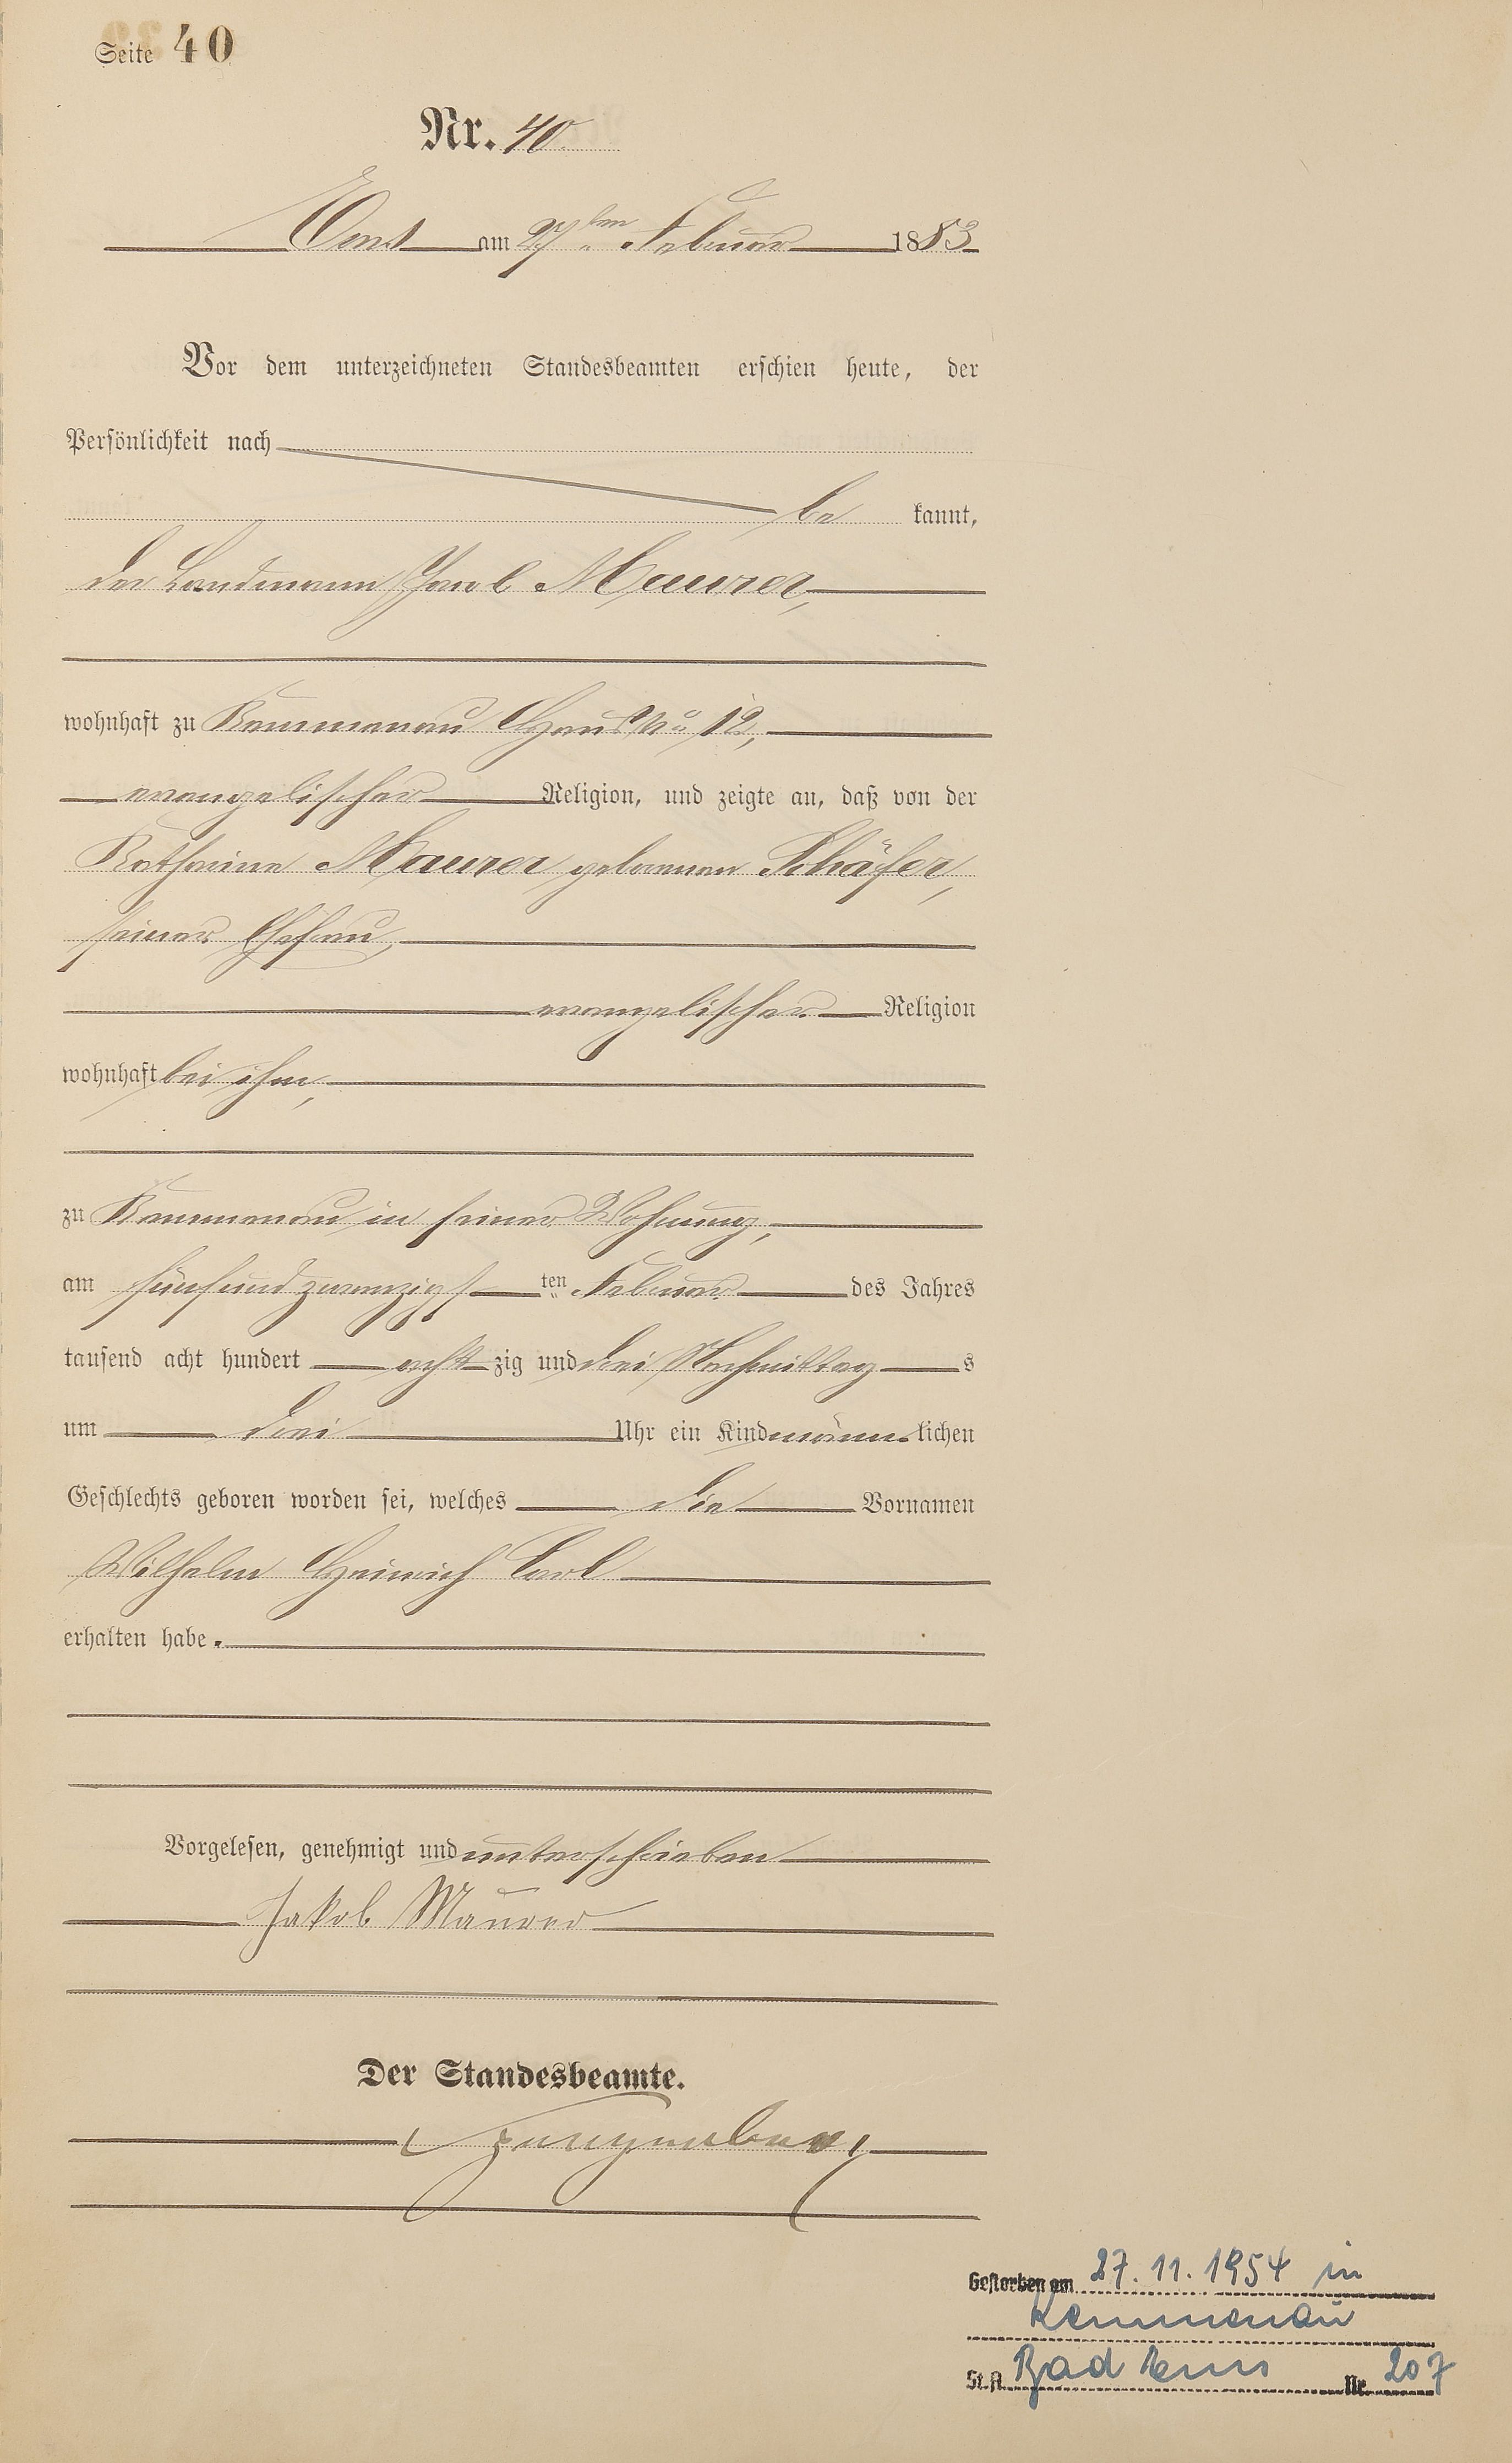 Seite 40
Nr. 40
Ems am 27ten Februar 1883
Vor dem unterzeichneten Standesbeamten erschien heute, der
Persönlichkeit nach
be kannt,
der Landmann Jacob Maurer,
wohnhaft zu Kemmenau Haus No 12,
evangelischer Religion, und zeigte an, daß von der
Katharine Maurer geborenen Schäfer,
seiner Ehefrau,
evangelischer Religion
wohnhaft bei ihm,
zu Kemmenau in seiner Wohnung,
am fünfundzwanzigs ten Februar des Jahres
tausend acht hundert acht zig und drei Nachmittag s
um drei Uhr ein Kind männ lichen
Geschlechts geboren worden sei, welches die Vornamen
Wilhelm Heinrich Carl
erhalten habe.
Vorgelesen, genehmigt und unterschrieben
Jakob Maurer
Der Standesbeamte.
Gestorben am 27.11.1954 in
Kemmenau
St.A. Bad Ems Nr. 207